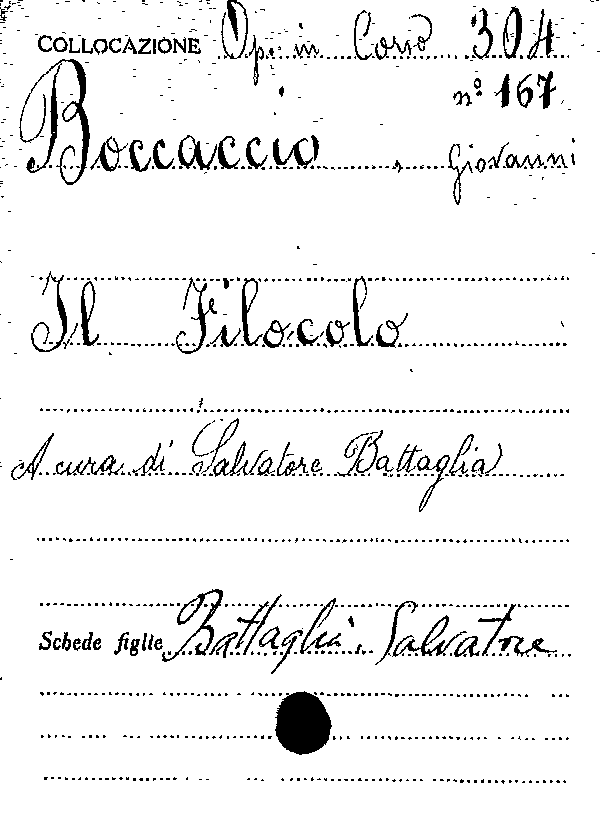 COLLOCAZIONE Op. in Corso 304
nº 167
Boccaccio, Giovanni
Il Filocolo
A cura di Salvatore Battaglia
Schede figlie Battaglia, Salvatore